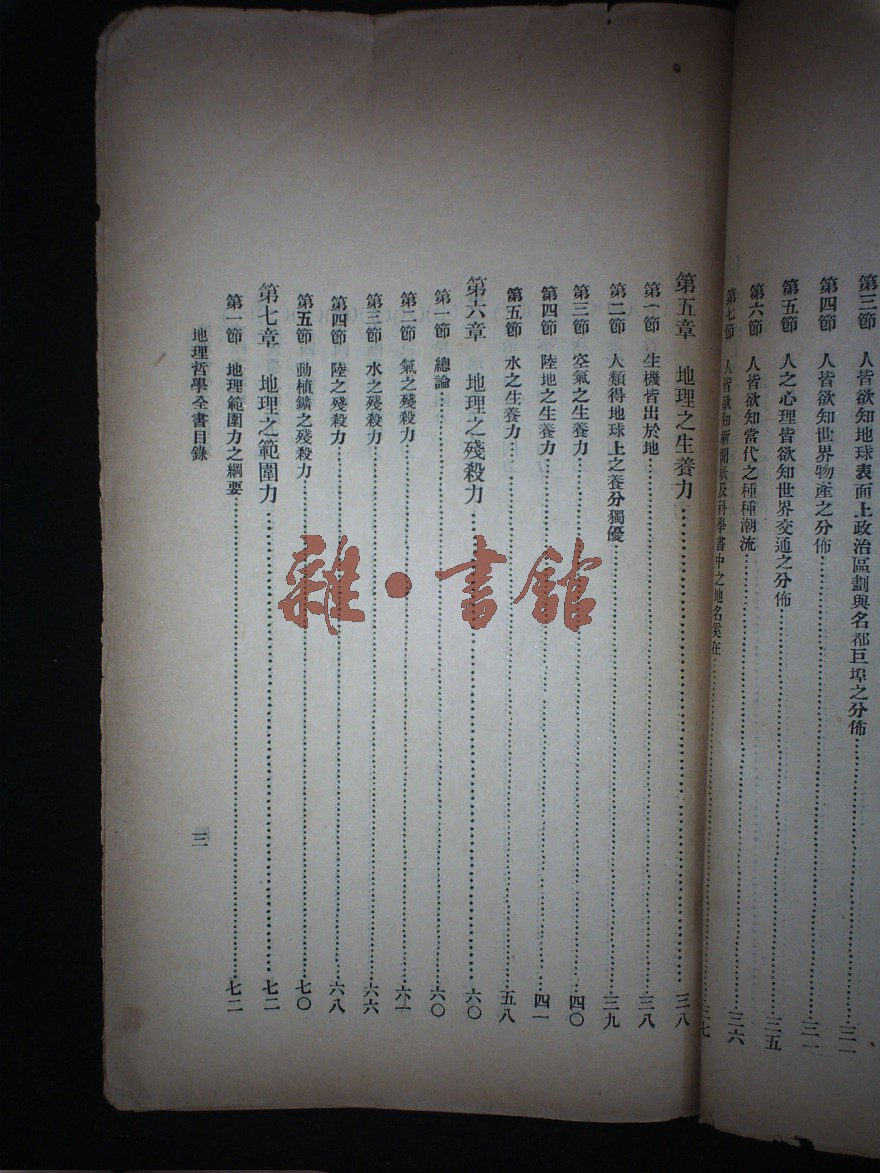 第三節 人皆欲知地球表面上政治區劃與名都巨埠之分佈…………三一
第四節 人皆欲知世界物產之分佈…………三一
第五節 人之心理皆欲知世界交通之分佈…………三五
第六節 人皆欲知當代之種種潮流…………三六
第七節 人皆欲知新聞紙及科學書中之地名奚在…………三七
第五章 地理之生養力…………三八
第一節 生機皆出於地…………三八
第二節 人類得地球上之養分獨優…………三九
第三節 空氣之生養力…………四〇
第四節 陸地之生養力…………四一
第五節 水之生養力…………五八
第六章 地理之殘殺力…………六〇
第一節 總論…………六〇
第二節 氣之殘殺力…………六一
第三節 水之殘殺力…………六六
第四節 陸之殘殺力…………六八
第五節 動植鑛之殘殺力…………七〇
第七章 地理之範圍力…………七二
第一節 地理範圍力之綱要…………七二
地理哲學全書目錄 三
雜·書館